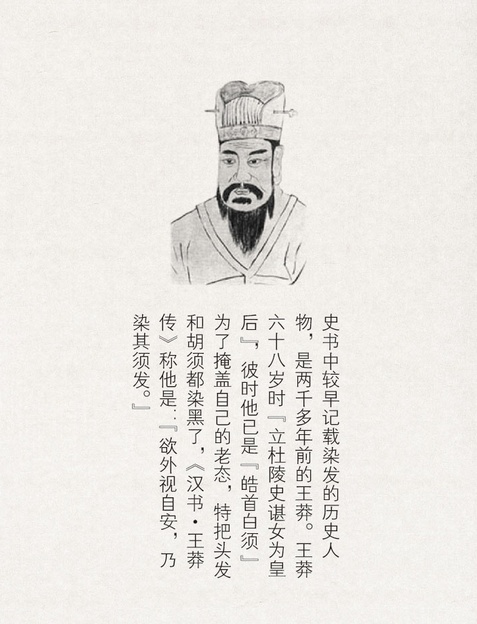 史书中较早记载染发的历史人
物，是两千多年前的王莽。王莽
六十八岁时『立杜陵史谌女为皇
后』，彼时他已是『皓首白须』
为了掩盖自己的老态，特把头发
和胡须都染黑了，《汉书·王莽
传》称他是：『欲外视自安，乃
染其须发。』